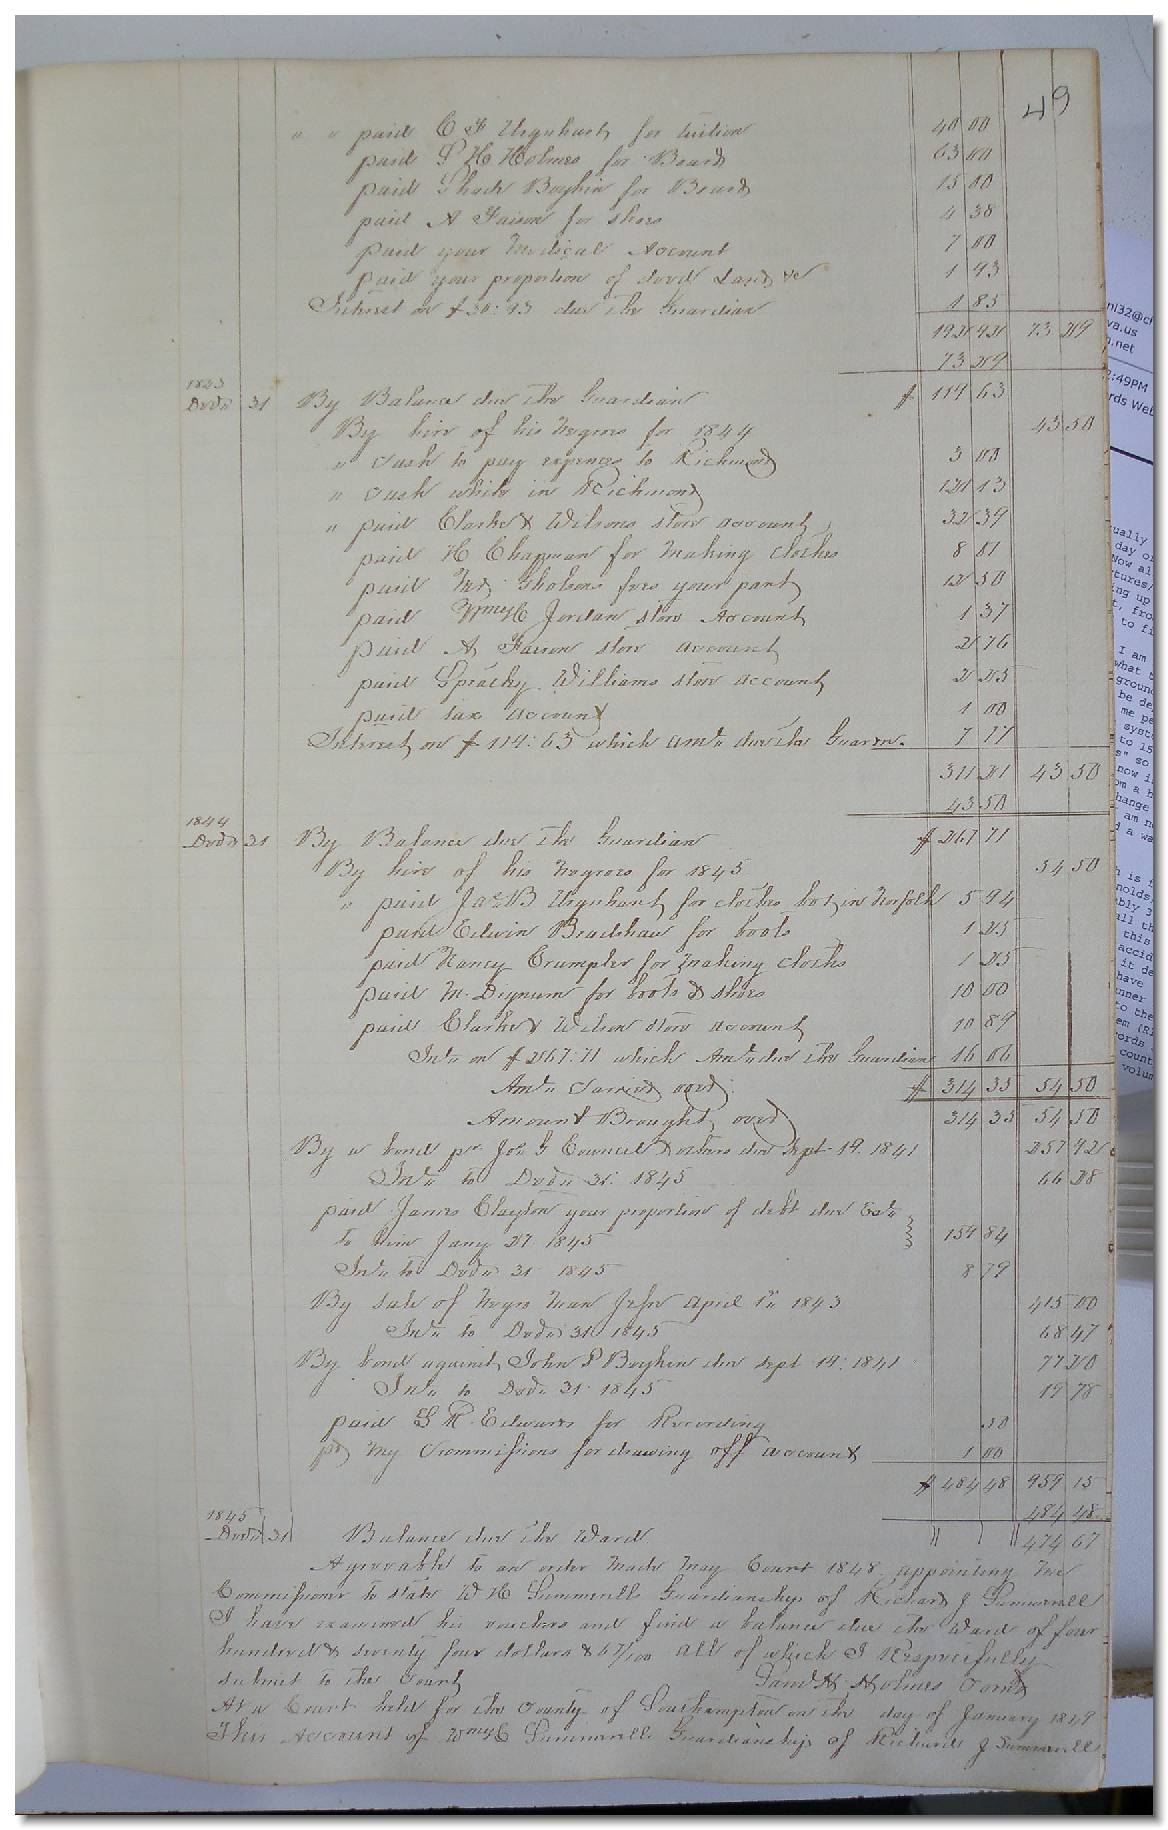 49
" " paid C F Urquhart for tuition 40 00
paid S H Holmes for Board 63 00
paid Shack Boykin for Board 15 00
paid A Faison for shoes 4 38
paid your Medical Account 7 00
paid your proportion of dowd Land &c 1 93
Interest on $30:93 due the Guardian 1 85
192 92 73 29
73 29
1843
Decr 31 By Balance due the Guardian $ 119 63
By hire of his Negroes for 1844 43 50
" Cash to pay expences to Richmond 3 00
" Cash while in Richmond 121 13
" paid Clarke & Wilsons store account 32 39
paid H Chapman for Making clothes 8 81
paid Mrs Gholsons fees your part 12 50
paid Wm H Jordan store Account 1 37
paid A Faison store account 2 76
paid Spratley Williams store account 2 25
paid tax account 1 00
Interest on $ 119:63 which amt due the Guardn. 7 17
311 21 43 50
43 50
1844
Decr 31 By Balance due the Guardian $ 267 71
By hire of his Negroes for 1845 54 50
" paid Jas B Urquhart for clothes bot in Norfolk 5 94
paid Edwin Bradshaw for boots 1 25
paid Nancy Crumpler for Making clothes 1 25
paid M. Deynum for boots & shoes 10 00
paid Clarke & Wilson store account 10 89
Intt on $267:71 which Amt due the Guardian 16 06
Amt Carried over $ 314 35 54 50
Amount Brought over 314 35 54 50
By a bond pr Jos G Council & others due Sept 19. 1841 257 92
Intt to Decr 31: 1845 66 28
paid James Clayton your proportion of debt due Estt
to him Jany 27 1845 159 84
Intt to Decr 31 1845 8 79
By sale of Negro Man Jefr April 1st 1843 415 00
Intt to Decr 31 1845 68 47
By bond against John P Boykin due Sept 19: 1841 77 20
Intt to Decr 31 1845 19 78
paid L R Edwards for Recording 50
pd My Commissions for drawing off account 1 00
$ 484 48 959 15
484 48
1845
Decr 31 Balance due the Ward 474 67
Agreeable to an order Made May Court 1848 appointing me
Commissioner to state W H Summrells Guardianship of Richard J Summrell
I have examined his vouchers and find a balance due the Ward of four
hundred & seventy four dollars & 67/100 all of which I Respectfully
submit to the Court Saml H Holmes Comr
At a Court held for the County of Southampton on the day of January 1849
This Account of Wm H Summrells Guardianship of Richard J Summrell